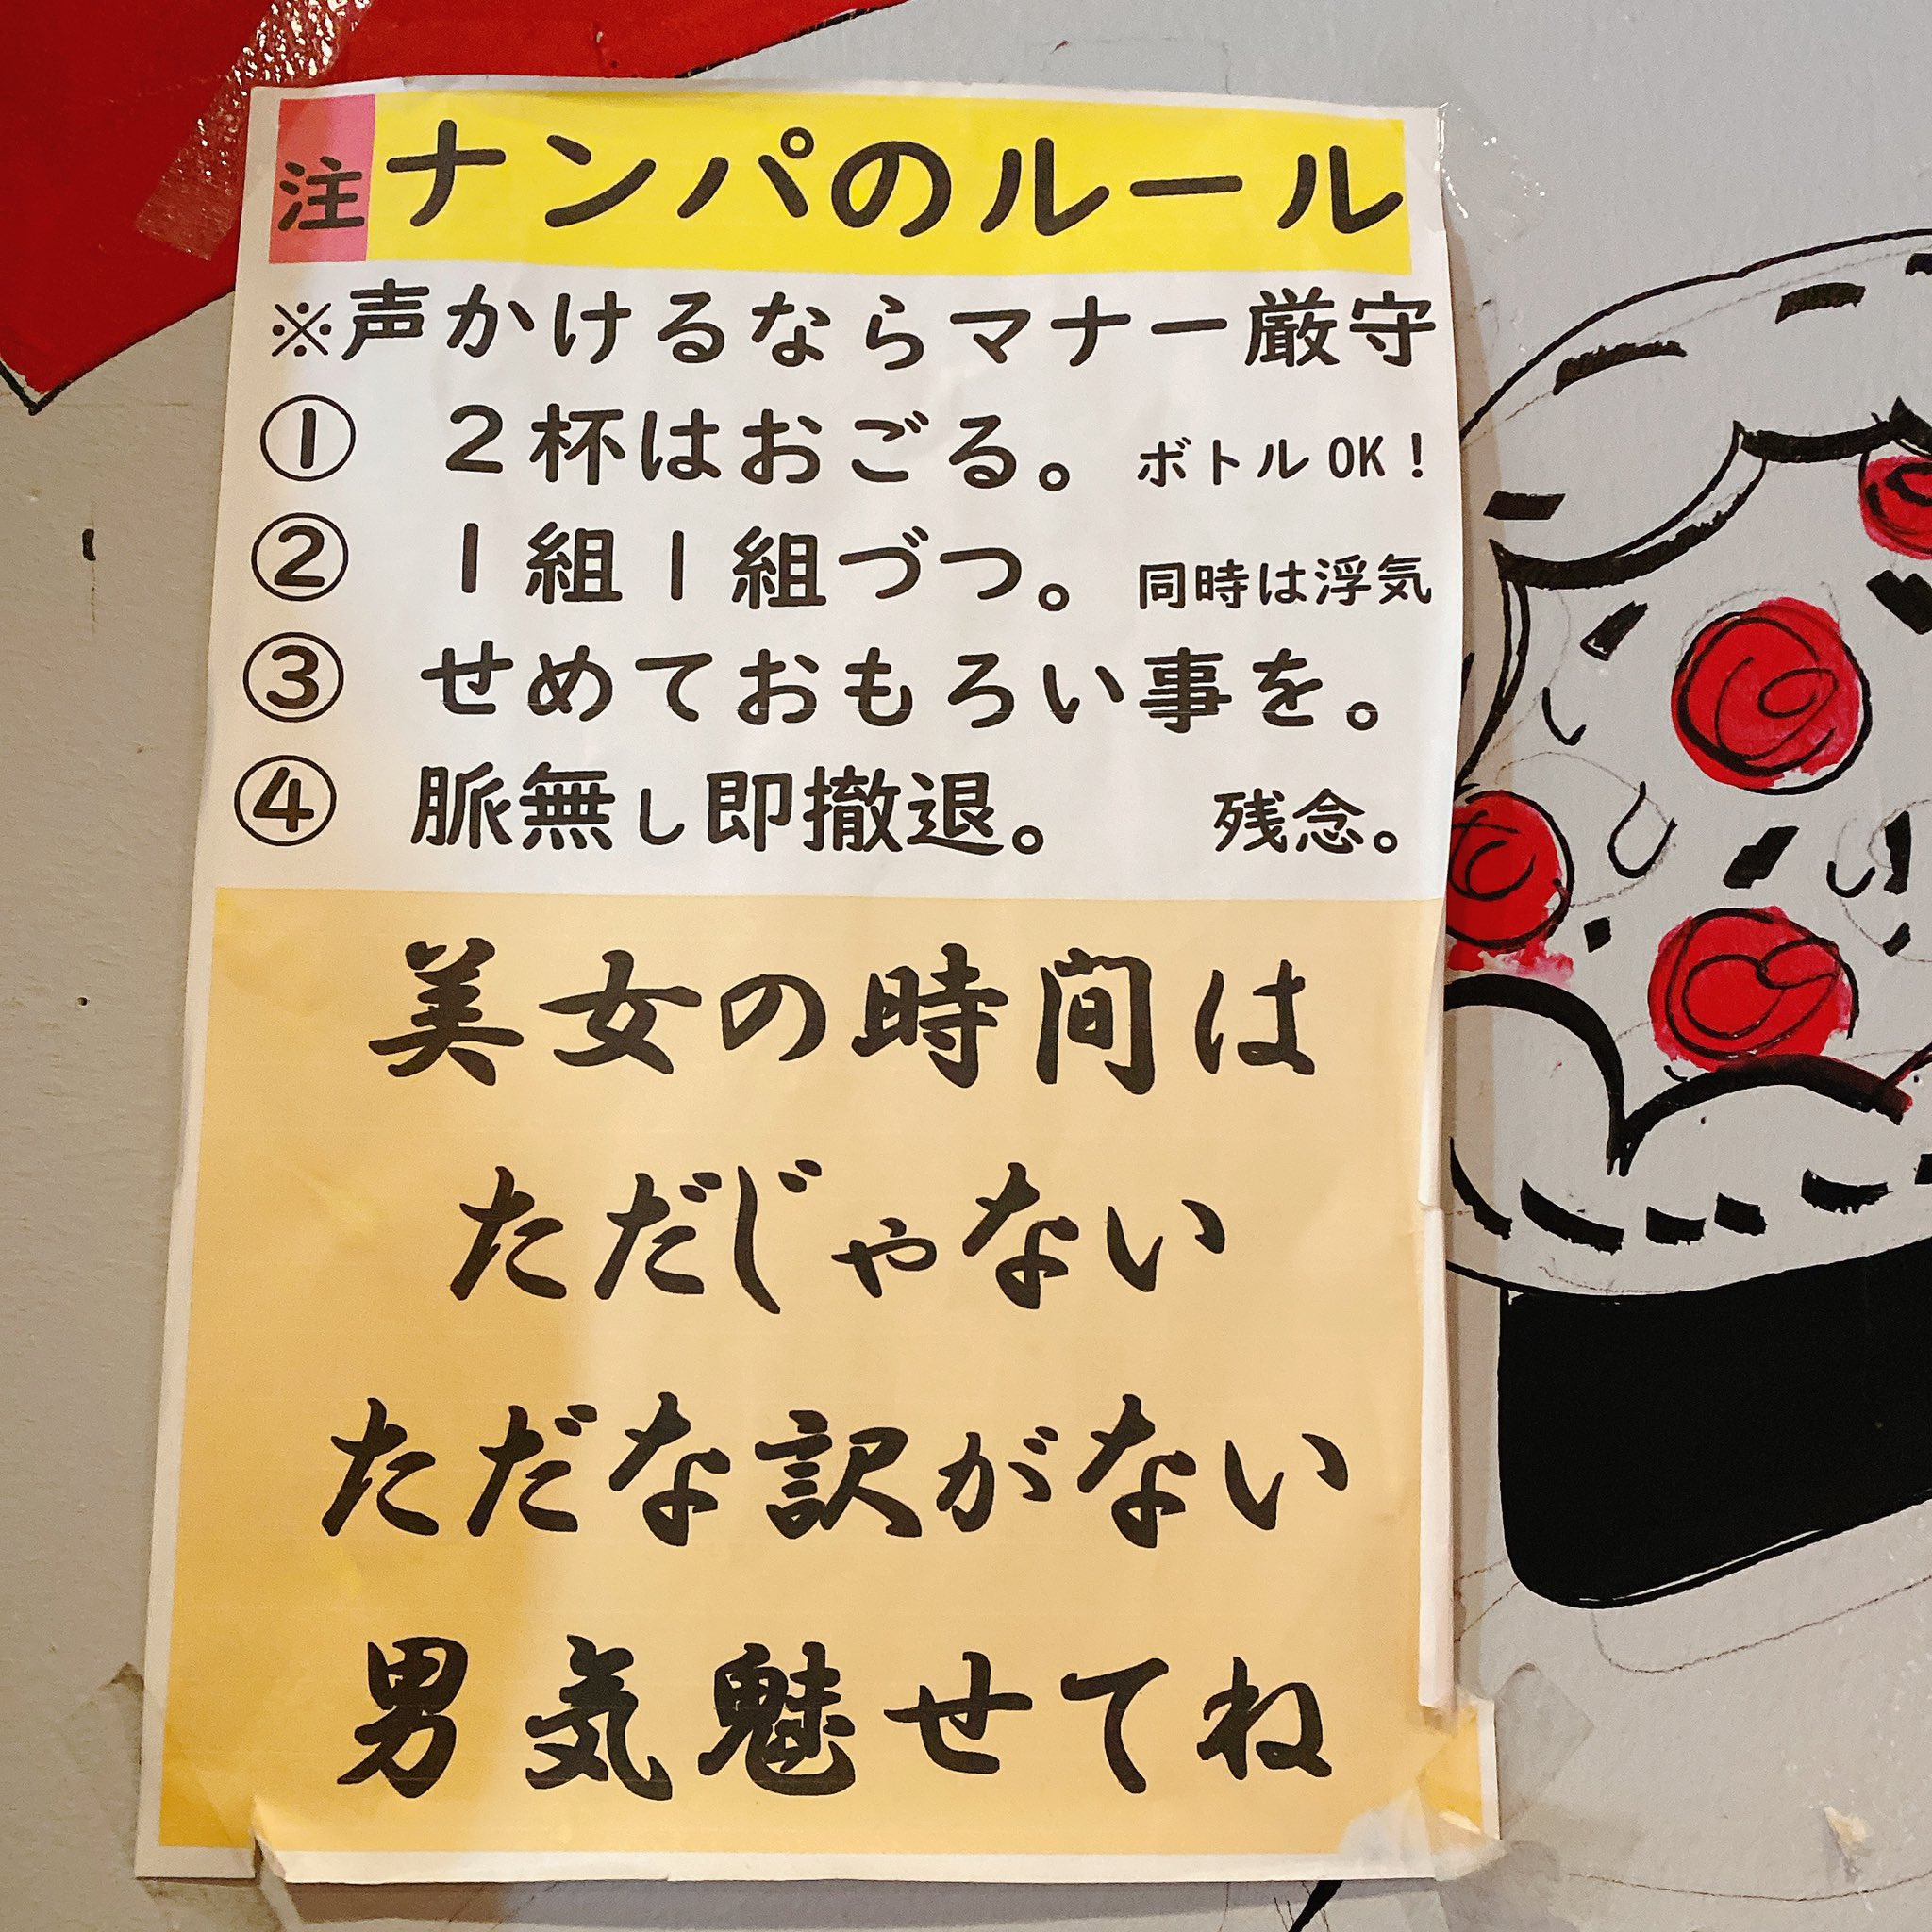 注 ナンパのルール
※声かけるならマナー厳守
① 2杯はおごる。 ボトルOK！
② 1組1組づつ。 同時は浮気
③ せめておもろい事を。
④ 脈無し即撤退。 残念。
美女の時間は
ただじゃない
ただな訳がない
男気魅せてね